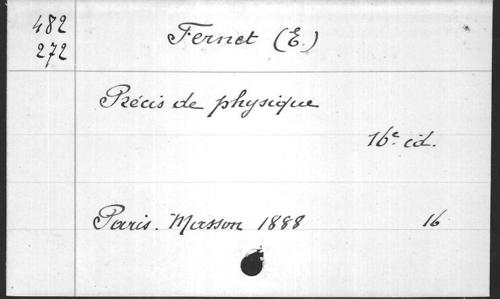 482
272
Fernet (E.)
Précis de physique
16e éd.
Paris. Masson 1888 16